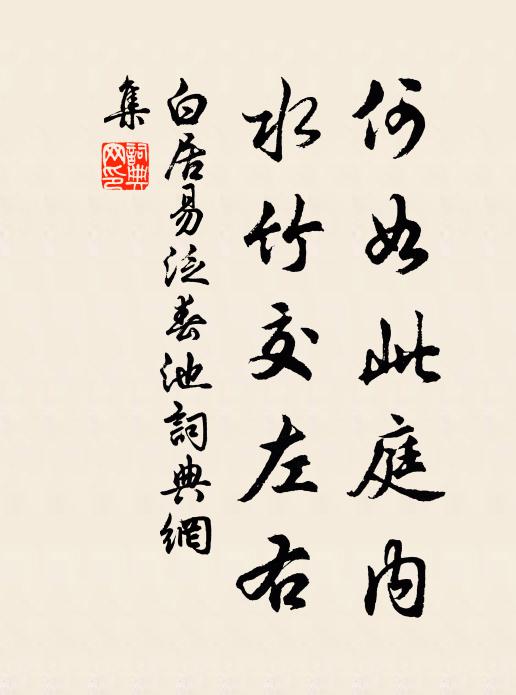 何如此庭内
水竹交左右
白居易泛春池詞典網
集
詞典
网印